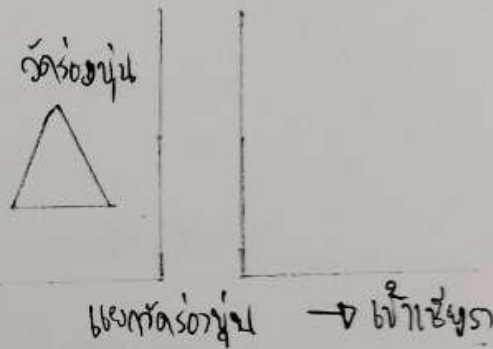 วัดร่องขุ่น
แยกวัดร่องขุ่น → เข้าเชียงรา